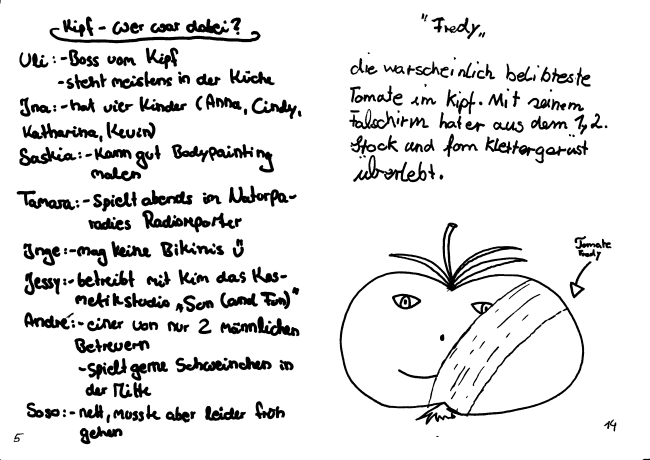 Kipf - wer war dabei?
Uli: - Boss vom Kipf
- steht meistens in der Küche
Ina: - hat vier Kinder (Anna, Cindy,
Katharina, Kevin)
Saskia: - Kann gut Bodypainting
malen
Tamara: - Spielt abends im Naturpa-
radies Radioreporter
Inge: - mag keine Bikinis Ü
Jessy: - betreibt mit Kim das Kos-
metikstudio „Sun (and Fun)"
André: - einer von nur 2 männlichen
Betreuern
- spielt gerne Schweinchen in
der Mitte
Soso: - nett, musste aber leider früh
gehen
5
"Fredy„
die warscheinlich belibteste
Tomate im Kipf. Mit seinem
Falschirm hat er aus dem 1, 2.
Stock und fom Klettergerüst
überlebt.
Tomate
Fredy
14